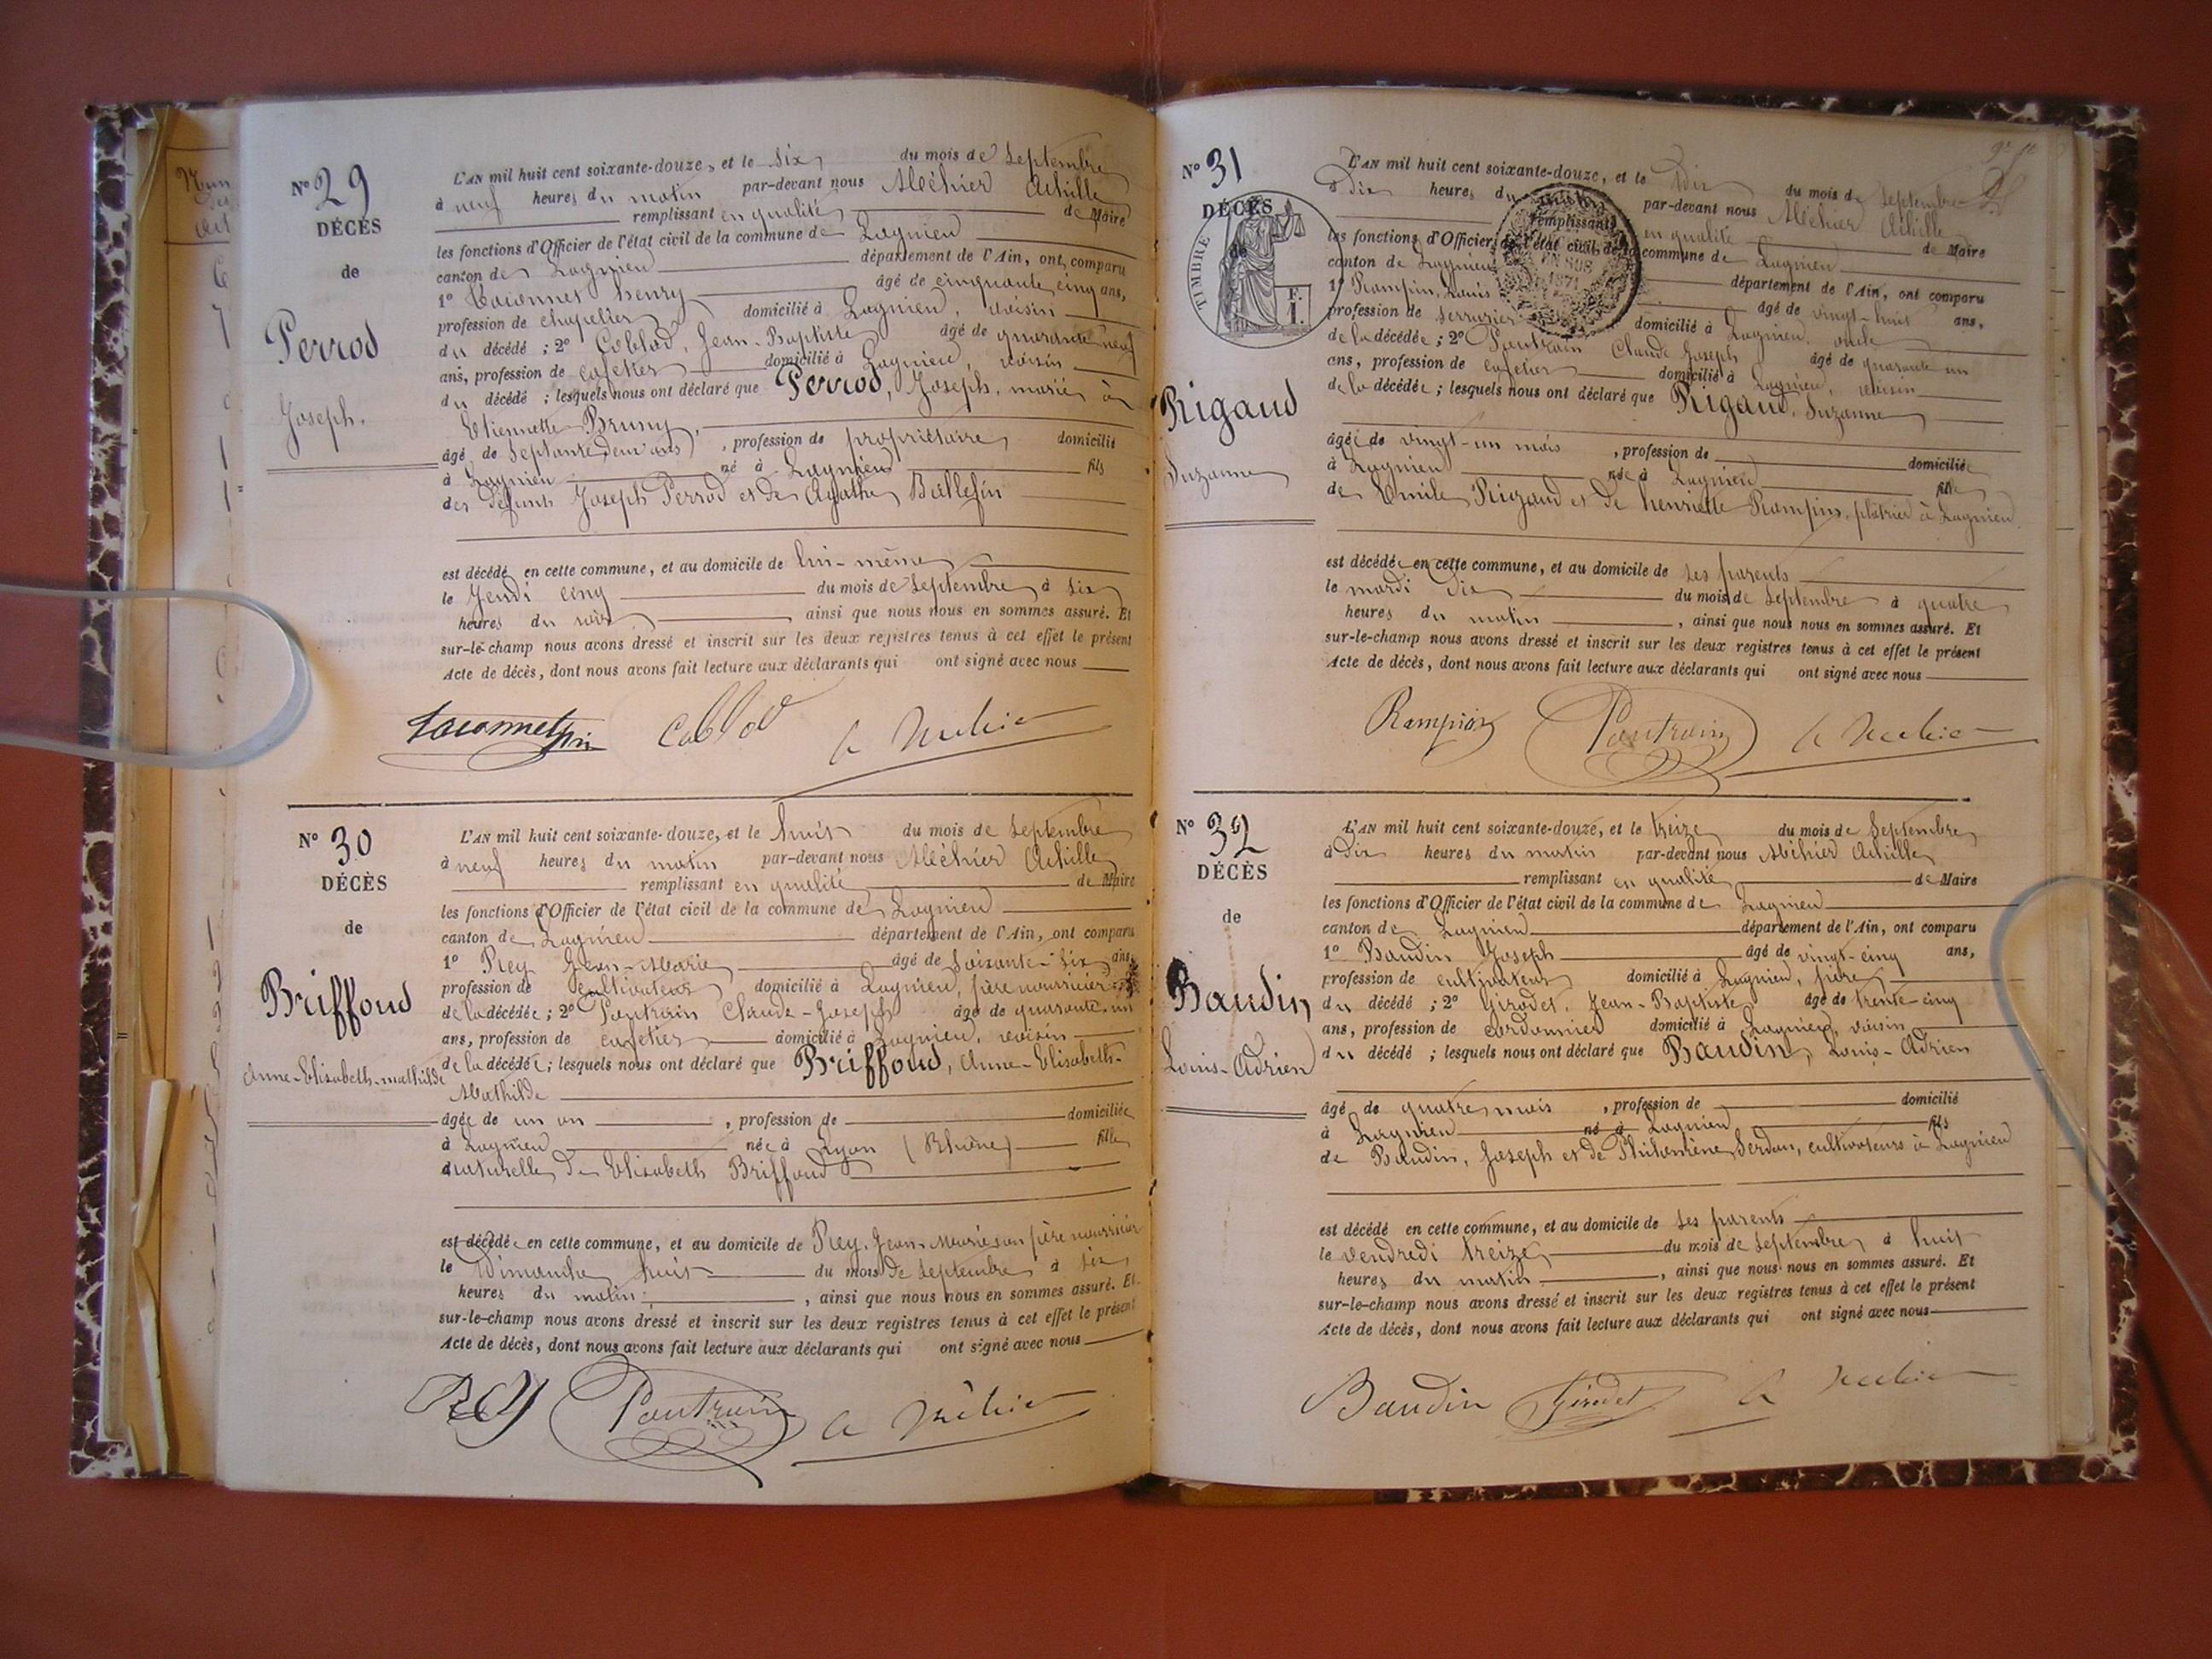 N° 29
DÉCÈS
de
Perrod
Joseph.
L'AN mil huit cent soixante-douze, et le six du mois de septembre
à neuf heures du matin par-devant nous Méchier Achille
remplissant en qualité de Maire
les fonctions d'Officier de l'état civil de la commune de Lagnieu
canton de Lagnieu département de l'Ain, ont comparu
1° henry âgé de cinquante cinq ans,
profession de chapelier domicilié à Lagnieu, voisin
du décédé ; 2° Coblod, Jean-Baptiste âgé de quarante neuf
ans, profession de cafetier domicilié à Lagnieu, voisin
du décédé ; lesquels nous ont déclaré que Perrod, Joseph, marié à
Etiennette Bruny,
âgé de septante deux ans, profession de propriétaire domicilié
à Lagnieu né à Lagnieu fils
des défunts Joseph Perrod et de Agathe
est décédé en cette commune, et au domicile de lui-même
le Jeudi cinq du mois de septembre à six
heures du soir, ainsi que nous nous en sommes assuré. Et
sur-le-champ nous avons dressé et inscrit sur les deux registres tenus à cet effet le présent
Acte de décès, dont nous avons fait lecture aux déclarants qui ont signé avec nous
Coblod A Méchier
N° 30
DÉCÈS
de
Briffoud
Anne-Elisabeth-mathilde
L'AN mil huit cent soixante-douze, et le huit du mois de septembre
à neuf heures du matin par-devant nous Méchier Achille
remplissant en qualité de Maire
les fonctions d'Officier de l'état civil de la commune de Lagnieu
canton de Lagnieu département de l'Ain, ont comparu
1° Rey Jean-Marie âgé de soixante-six ans,
profession de cultivateur domicilié à Lagnieu, père nourricier
de la décédée ; 2° Pautrain Claude-Joseph âgé de quarante-un
ans, profession de cafetier domicilié à Lagnieu, voisin
de la décédée ; lesquels nous ont déclaré que Briffoud, Anne-Elisabeth-
Mathilde
âgée de un an, profession de domiciliée
à Lagnieu née à Lyon (Rhône) fille
naturelle de Elisabeth Briffoud
est décédée en cette commune, et au domicile de Rey, Jean-Marie son père nourricier
le Dimanche huit du mois de septembre à six
heures du matin, ainsi que nous nous en sommes assuré. Et
sur-le-champ nous avons dressé et inscrit sur les deux registres tenus à cet effet le présent
Acte de décès, dont nous avons fait lecture aux déclarants qui ont signé avec nous
REY Pautrain A Méchier
N° 31
DÉCÈS
de
TIMBRE
Rigaud
Suzanne
L'AN mil huit cent soixante-douze, et le dix du mois de septembre
à dix heures du matin par-devant nous Méchier Achille
remplissant en qualité de Maire
les fonctions d'Officier de l'état civil de la commune de Lagnieu
canton de Lagnieu département de l'Ain, ont comparu
1° Rampin, Louis âgé de vingt-huit ans,
profession de serrurier domicilié à Lagnieu, oncle
de la décédée ; 2° Pautrain Claude Joseph âgé de quarante un
ans, profession de cafetier domicilié à Lagnieu, voisin
de la décédée ; lesquels nous ont déclaré que Rigaud, Suzanne
âgée de vingt-un mois, profession de domiciliée
à Lagnieu née à Lagnieu fille
de Emile Rigaud et de henriette Rampin, plâtrier à Lagnieu
est décédée en cette commune, et au domicile de ses parents
le mardi dix du mois de septembre à quatre
heures du matin, ainsi que nous nous en sommes assuré. Et
sur-le-champ nous avons dressé et inscrit sur les deux registres tenus à cet effet le présent
Acte de décès, dont nous avons fait lecture aux déclarants qui ont signé avec nous
Rampin Pautrain A Méchier
N° 32
DÉCÈS
de
Baudin
Louis-Adrien
L'AN mil huit cent soixante-douze, et le treize du mois de septembre
à dix heures du matin par-devant nous Méchier Achille
remplissant en qualité de Maire
les fonctions d'Officier de l'état civil de la commune de Lagnieu
canton de Lagnieu département de l'Ain, ont comparu
1° Baudin Joseph âgé de vingt-cinq ans,
profession de cultivateur domicilié à Lagnieu, père
du décédé ; 2° Girodet, Jean-Baptiste âgé de trente-cinq
ans, profession de cordonnier domicilié à Lagnieu, voisin
du décédé ; lesquels nous ont déclaré que Baudin, Louis-Adrien
âgé de quatre mois, profession de domicilié
à Lagnieu né à Lagnieu fils
de Baudin, Joseph et de Philomène Serdon, cultivateurs à Lagnieu
est décédé en cette commune, et au domicile de ses parents
le vendredi treize du mois de septembre à huit
heures du matin, ainsi que nous nous en sommes assuré. Et
sur-le-champ nous avons dressé et inscrit sur les deux registres tenus à cet effet le présent
Acte de décès, dont nous avons fait lecture aux déclarants qui ont signé avec nous
Baudin Girodet A Méchier